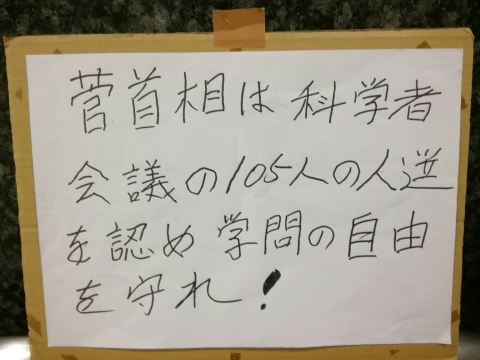 菅首相は科学者
会議の105人の人選
を認め学問の自由
を守れ!